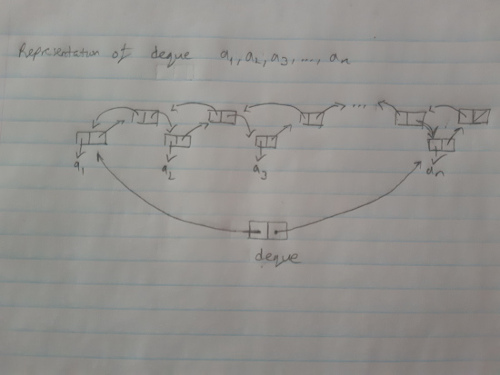 Representation of deque a₁, a₂, a₃, ..., aₙ
...
a₁ a₂ a₃ aₙ
deque